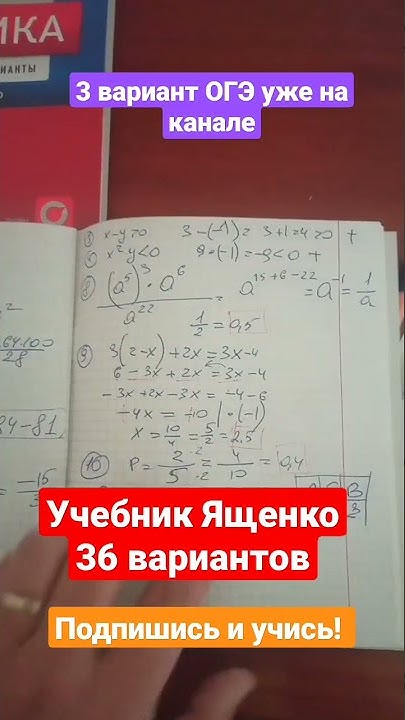 ИКА
ВАРИАНТЫ
3 вариант ОГЭ уже на
канале
③ x-y>0 3-(-1)= 3+1=4>0 +
④ x²y<0 9·(-1)=-9<0 +
⑧ (a⁵)³·a⁶ / a²² = a¹⁵⁺⁶⁻²² = a⁻¹ = 1/a
1/2 = 0,5
⑨ 3(2-x)+2x=3x-4
6-3x+2x=3x-4
-3x+2x-3x=-4-6
-4x=-10 |·(-1)
x=10/4=5/2=2,5
⑩ P=2·2/5·2=4/10=0,4
64·100
28
84-81
-15
Учебник Ященко
36 вариантов
Подпишись и учись!